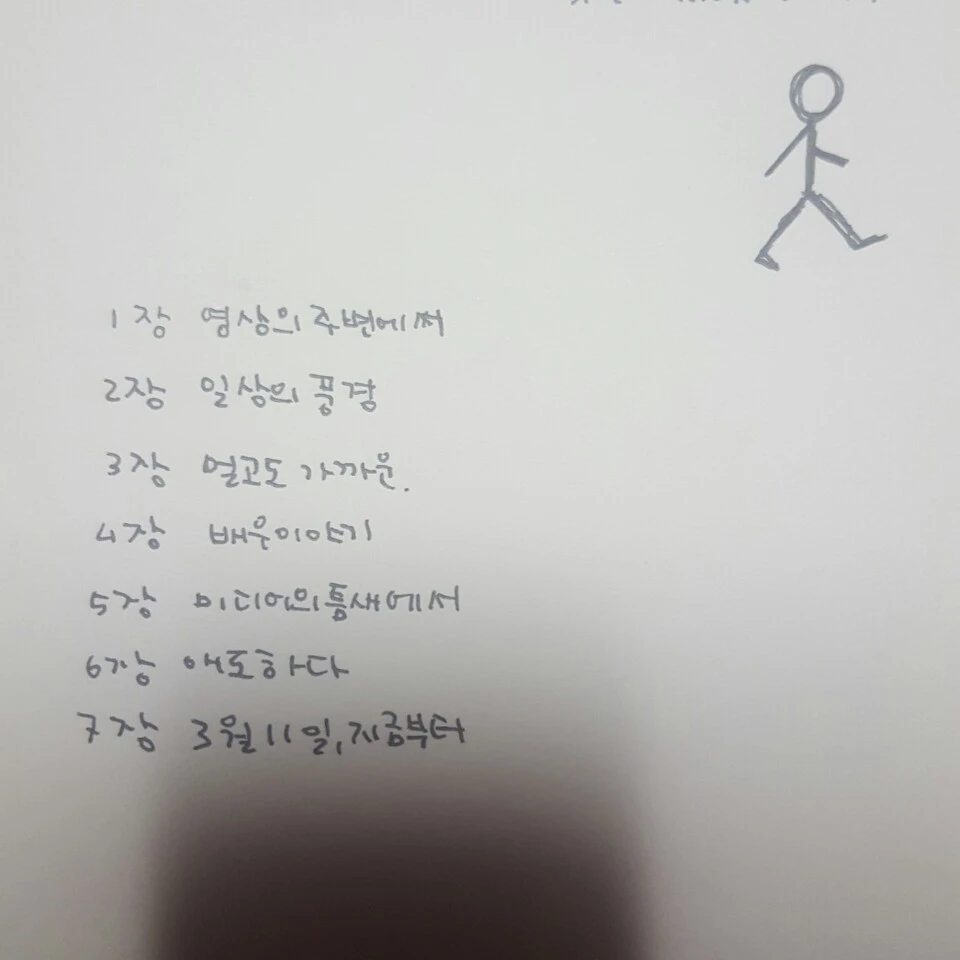 1장 영상의 주변에써
2장 일상의 풍경
3장 멀고도 가까운.
4장 배우이야기
5장 미디어의틈새에서
6장 애도하다
7장 3월11일,지금부터